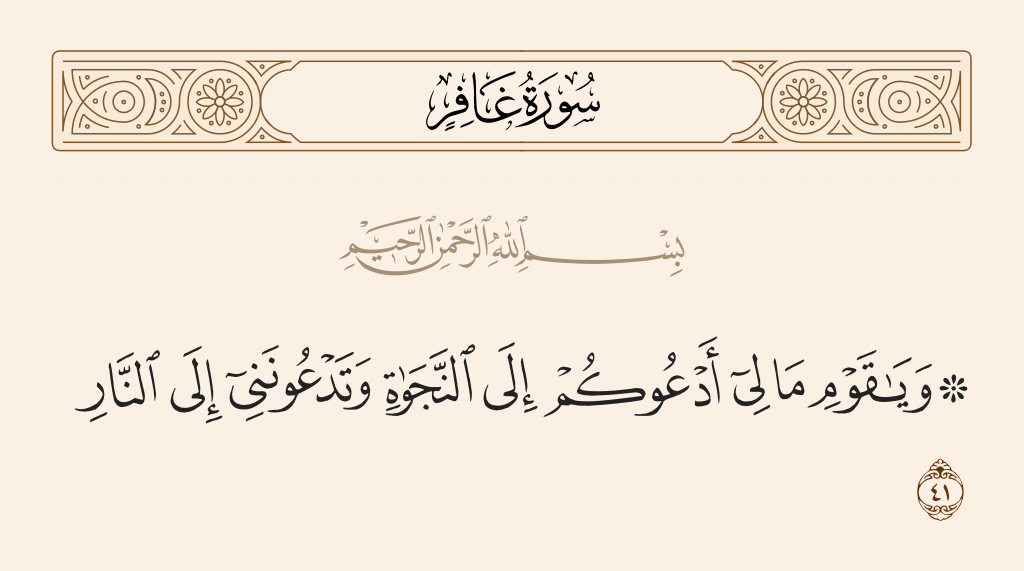 سُورَةُ غَافِرٍ
بِسْمِ ٱللَّهِ ٱلرَّحْمَٰنِ ٱلرَّحِيمِ
۞ وَيَـٰقَوْمِ مَا لِىٓ أَدْعُوكُمْ إِلَى ٱلنَّجَوٰةِ وَتَدْعُونَنِىٓ إِلَى ٱلنَّارِ
٤١